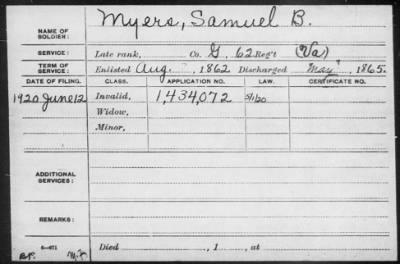 NAME OF SOLDIER: Myers, Samuel B.
SERVICE: Late rank, Co. G, 62 Reg't (Va)
TERM OF SERVICE: Enlisted Aug. , 1862 Discharged May , 1865.
DATE OF FILING. CLASS. APPLICATION NO. LAW. CERTIFICATE NO.
1920 June 12 Invalid, 1,434,072 5/1/20
Widow,
Minor,
ADDITIONAL SERVICES:
REMARKS:
Died , 1 , at